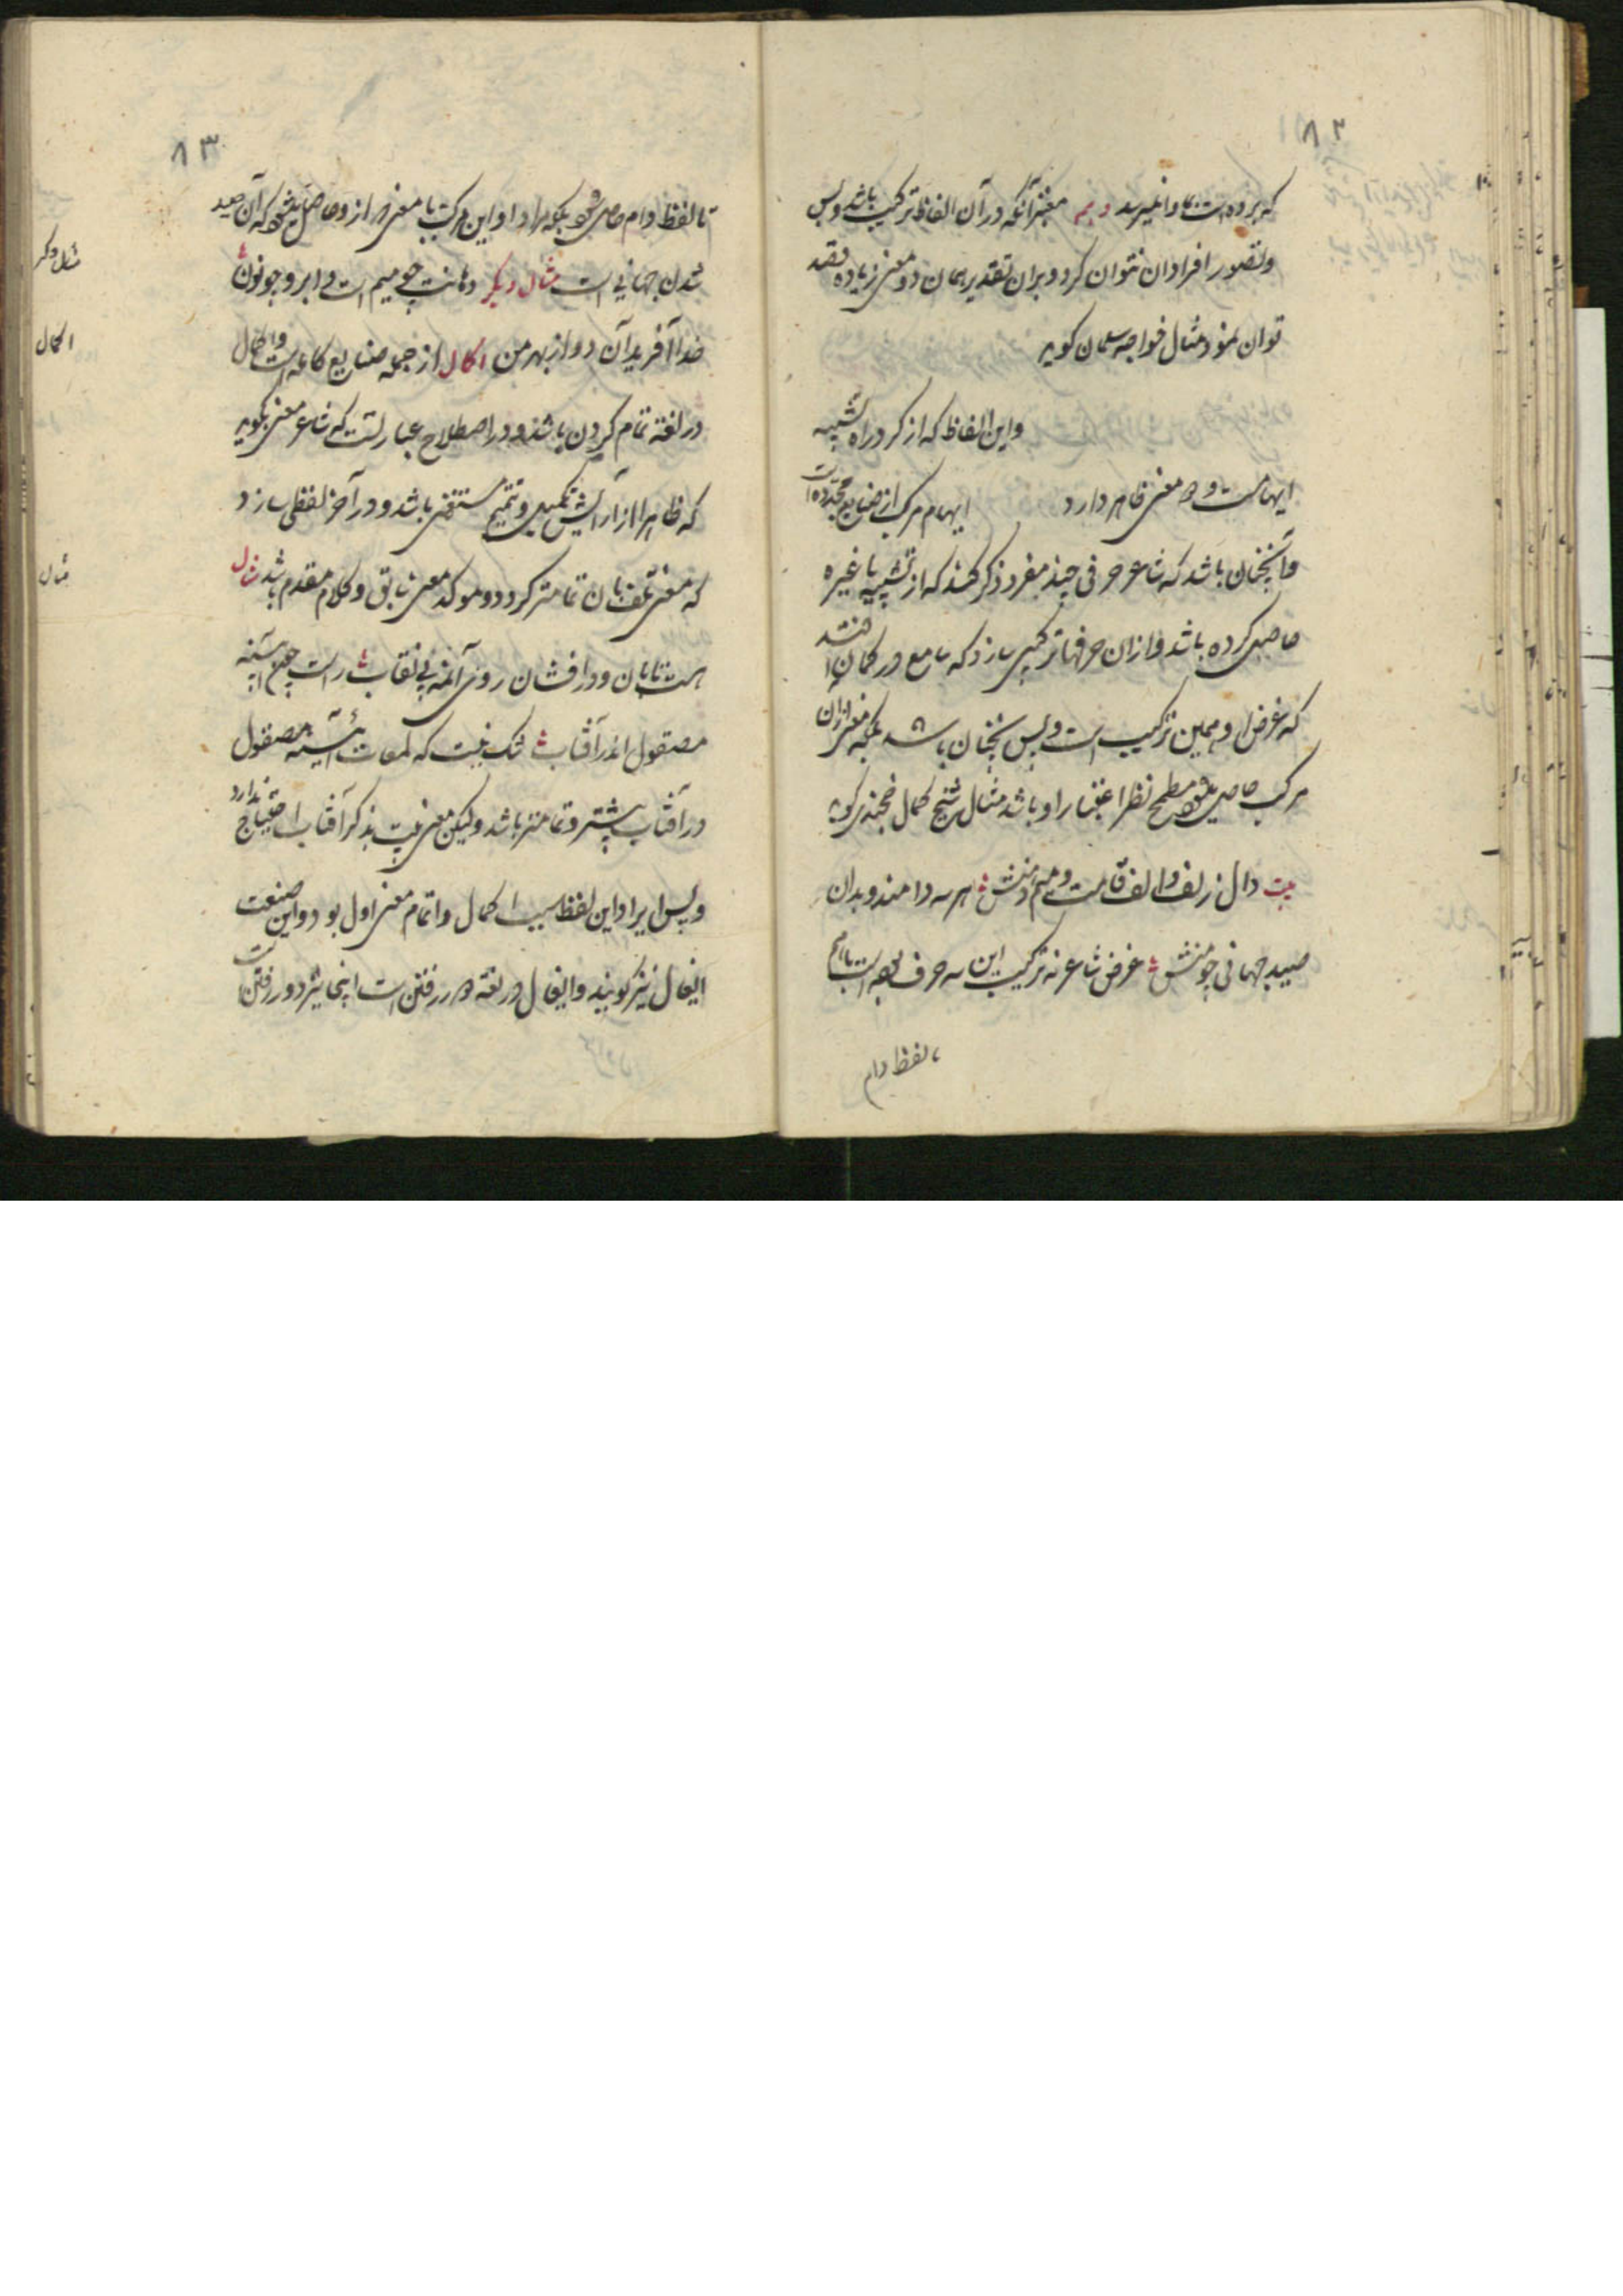 ۸۲
که برده است بما وا نمیرسد دویم معنی آنکه در آن الفاظ ترکیب باشد و بس
و تصور افراد آن نتوان کرد و بران تقدیر همان دو معنی زیاده قصد
توان نمود مثال خواجه سلمان کوید
و این الفاظ که از کرد راه تشبیه
ایهامست و دو معنی ظاهر دارد ایهام مرکب از صنایع مجدده است
و آنچنان باشد که شاعر حرفی چند مفرد ذکر کند که از تشبیه یا غیره
حاصل کرده باشد و ازان حرفها ترکیبی سازد که سامع در کمان افتد
که غرض او همین ترکیب است و بس نچنان باشد بلکه معنی ازان
مرکب حاصل میشود مطمح نظر اعتبار او باشد مثال شیخ کمال خجندی کوید
بیت دال زلف و الف قامت و میم دهنش هر سه دامند و بدان
صید جهانی چو منش غرض شاعر نه ترکیب این سه حرف بوده است با هم
تا لفظ دام
۸۳
تا لفظ دام حاصل شود بلکه مراد او این مرکب با معنی که از و حاصل میشود که آن صید
شدن جهانی است مثال دیکر دهانت چو میم است و ابرو چو نون
خدا آفرید آن دو از بهر من اکمال از جمله صنایع کامله است و اکمال
در لغت تمام کردن باشد و در اصطلاح عبارتست که شاعر معنی بکوید
که ظاهرا از آرایش تکمیل و تتمیم مستغنی باشد و در آخر لفظی سازد
که معنی بلفظ آن تمامتر کردد و موکد معنی سابق و کلام مقدم باشد مثال
هست تابان و درافشان روی آنمه بی نقاب راست چون آیینه
مصقول اندر آفتاب شک نیست که لمعات آیینه مصقول
در آفتاب بیشتر و تمامتر باشد ولیکن معنی بیت بذکر آفتاب احتیاج ندارد
و پس ایراد این لفظ سبب اکمال و اتمام معنی اول بود و این صنعت
ایغال نیز کویند و ایغال در لغت دور رفتن است اینجا نیز دور رفتن است
مثال دکر
اکمال
مثال